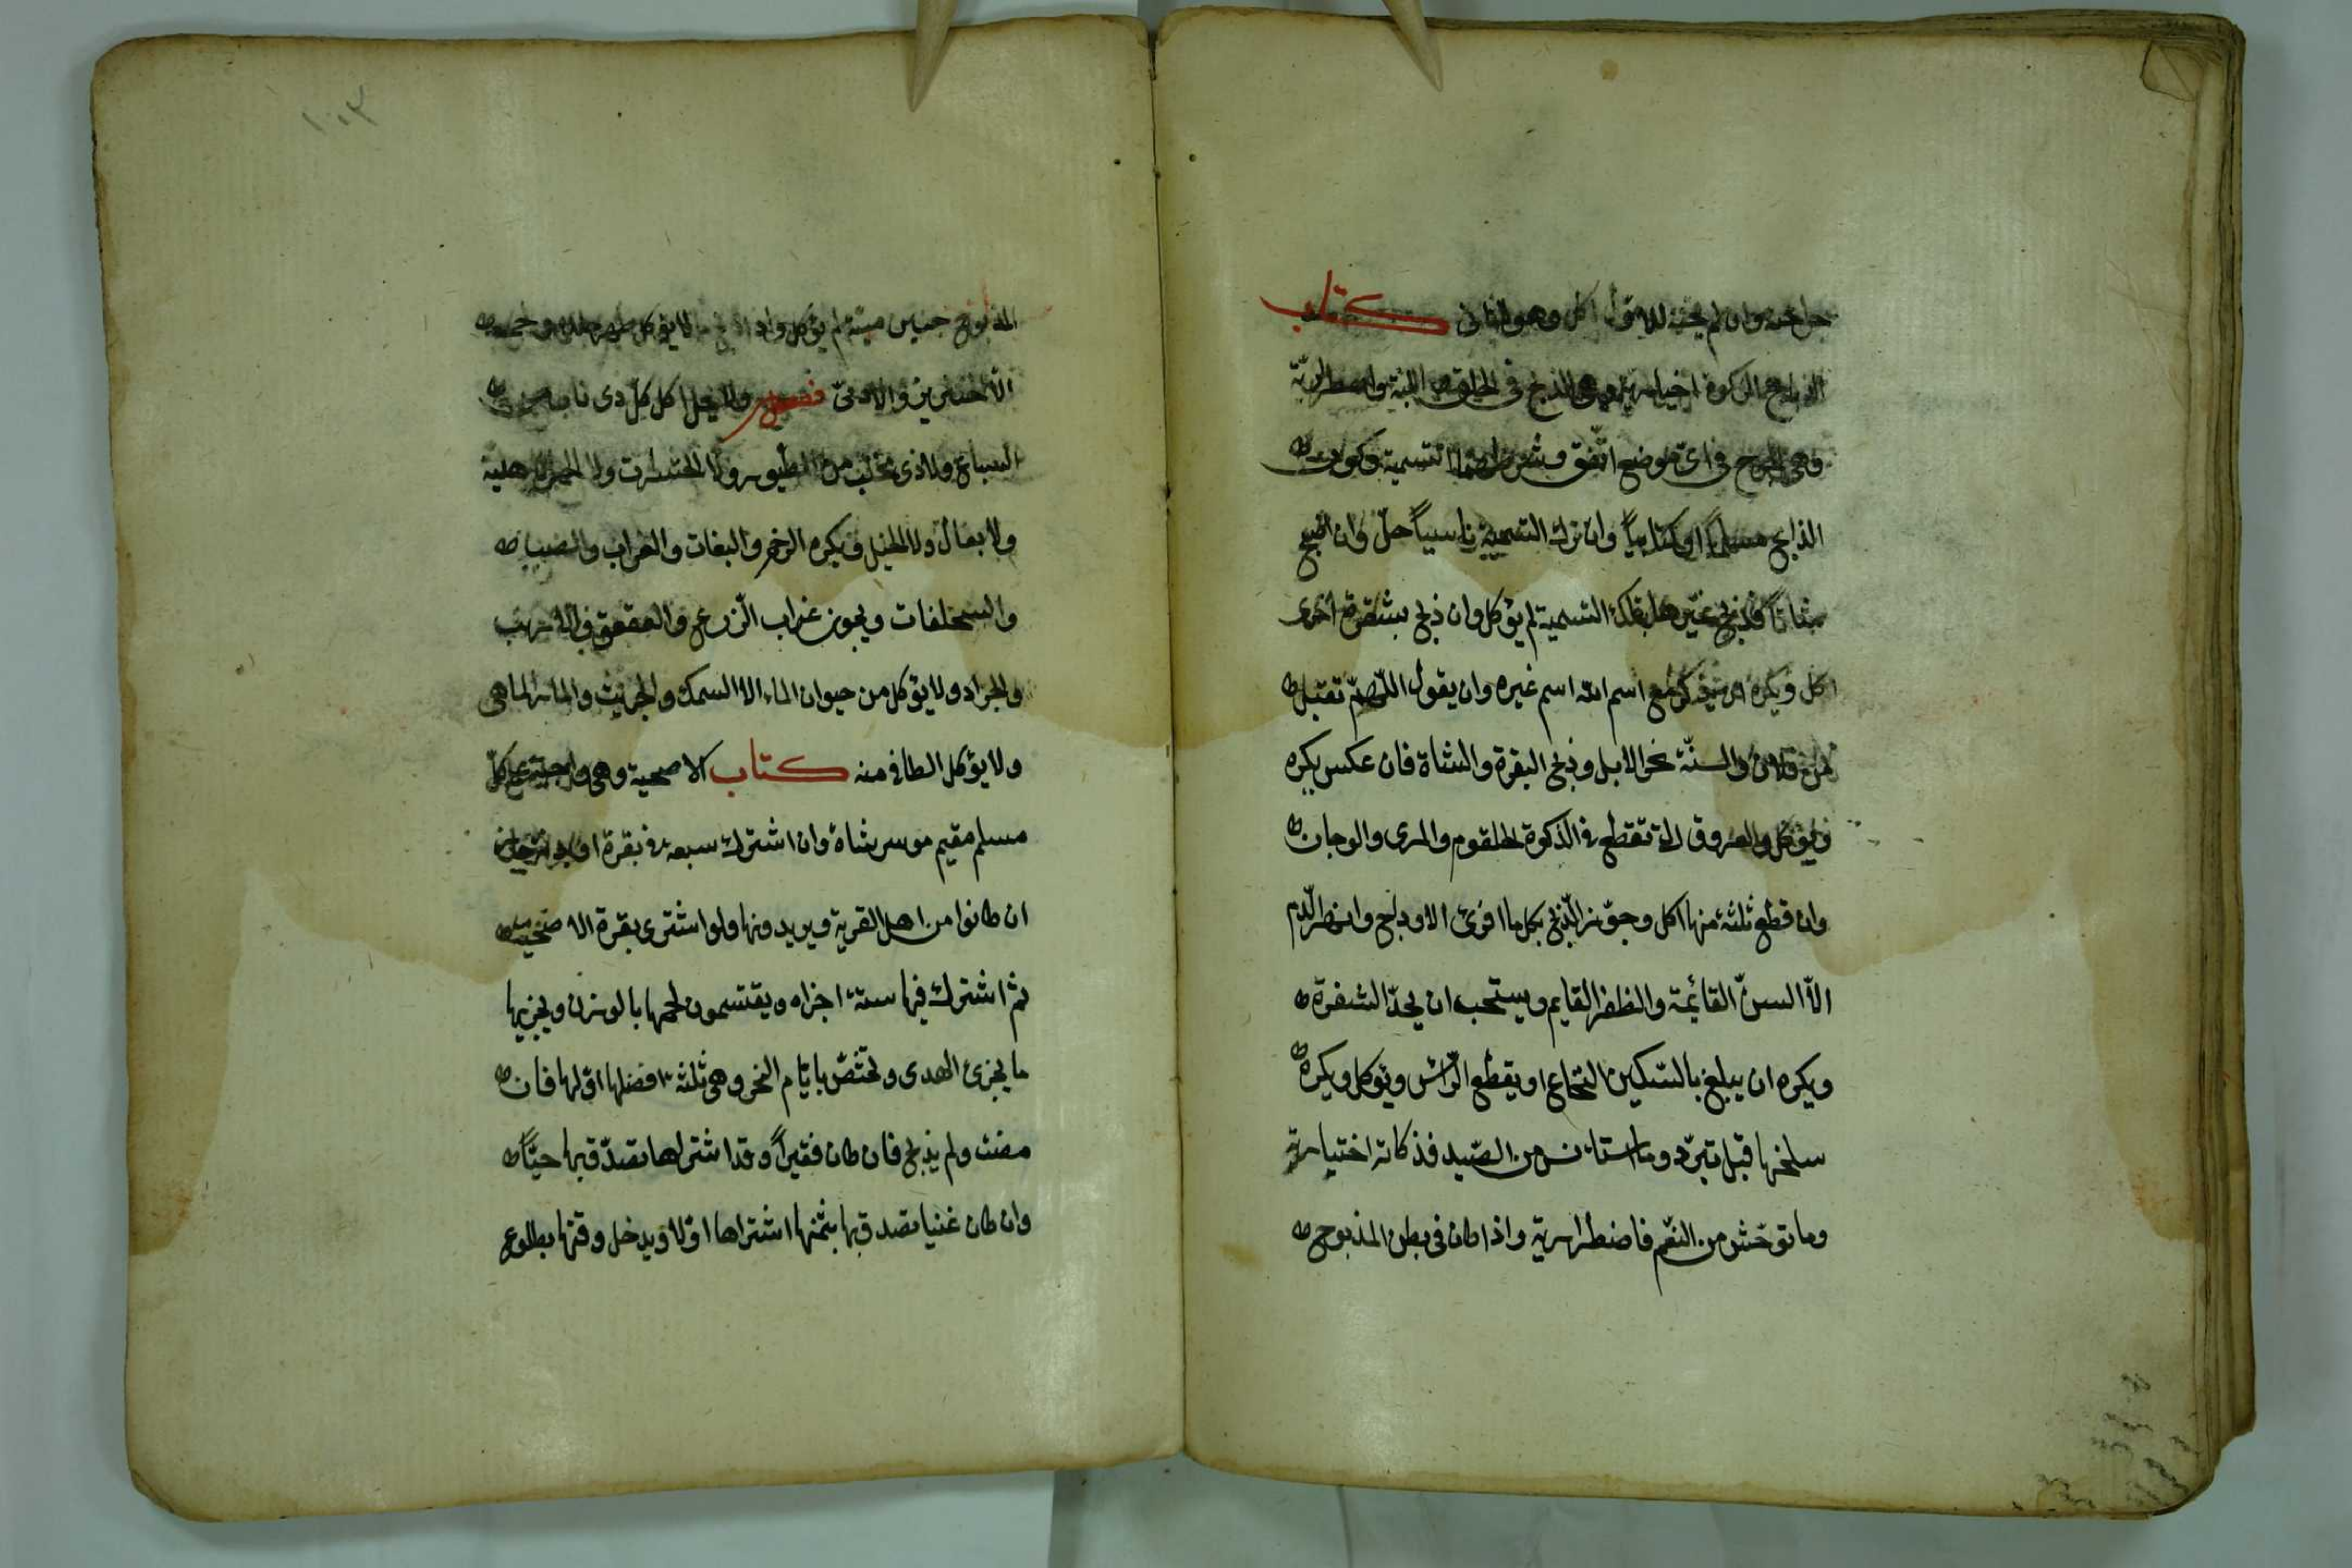 كتاب
الذبايح الذكوة اختيارية وهى الذبح فى الحلق واللبة واضطرارية
وهى الجرح فى اى موضع اتّفق وشرطهما التسمية وكون
الذابح مسلماً او كتابياً وان ترك التسمية ناسياً حلّ وان اضجع
شاتاً فذبح غيرها بتلك التسمية لم يؤكل وان ذبح بشفرة اخرى
اكل ويكره ان يذكر مع اسم الله اسم غيره وان يقول اللّهمّ تقبل
من فلان والسنّة نحر الابل وذبح البقرة والشاة فان عكس يكره
ويؤكل والعروق التى تقطع فى الذكوة الحلقوم والمرى والوجان
وان قطع ثلثة منها اكل ويجوز الذّبح بكل ما افرى الاوداج وانهر الدّم
الاّ السنّ القائمة والظفر القايم ويستحب ان يحدّ الشفرة
ويكره ان يبلغ بالسّكين النخاع او يقطع الرّاس ويؤكل ويكره
سلخها قبل تبرّد وما استانس من الصّيد فذكاته اختيارية
وما توحّش من النعّم فاضطرارية واذا كان فى بطن المذبوح
١٠٣
المذبوح جنين ميتة لم يؤكل واذا ذبح ما لا يؤكل طهر جلده ولحمه
الا الخنزير والادمىّ فصل ولا يحل اكل كلّ ذى ناب من
السباع ولا ذى مخلب من الطيور ولا الحشرات ولا الحمر الاهلية
ولا بغال ولا الخيل ويكره الرخم والبغاث والغراب والضب
والسحلفات ويجوز غراب الزّرع والعقعق والارنب
والجراد ولا يؤكل من حيوان الماء الا السمك والجريث والمارماهى
ولا يؤكل الطافى منه كتاب الاضحية وهى واجبة على كلّ
مسلم مقيم موسر بشاة وان اشترك سبعة فى بقرة او بدنة جاز
ان كانوا من اهل القربة ويريدونها ولو اشترى بقرة الاضحية
ثم اشترك فيها ستة اجزاه ويقتسمون لحمها بالوزن ويجزيها
ما يجزئ الهدى وتختصّ بايّام النحر وهى ثلثة افضلها اوّلها فان
مضت ولم يذبح فان كان فقيراً وقد اشتراها تصدّق بها حيّاً
وان كان غنيا تصدق بها بثمنها اشتراها اولا ويدخل وقتها بطلوع